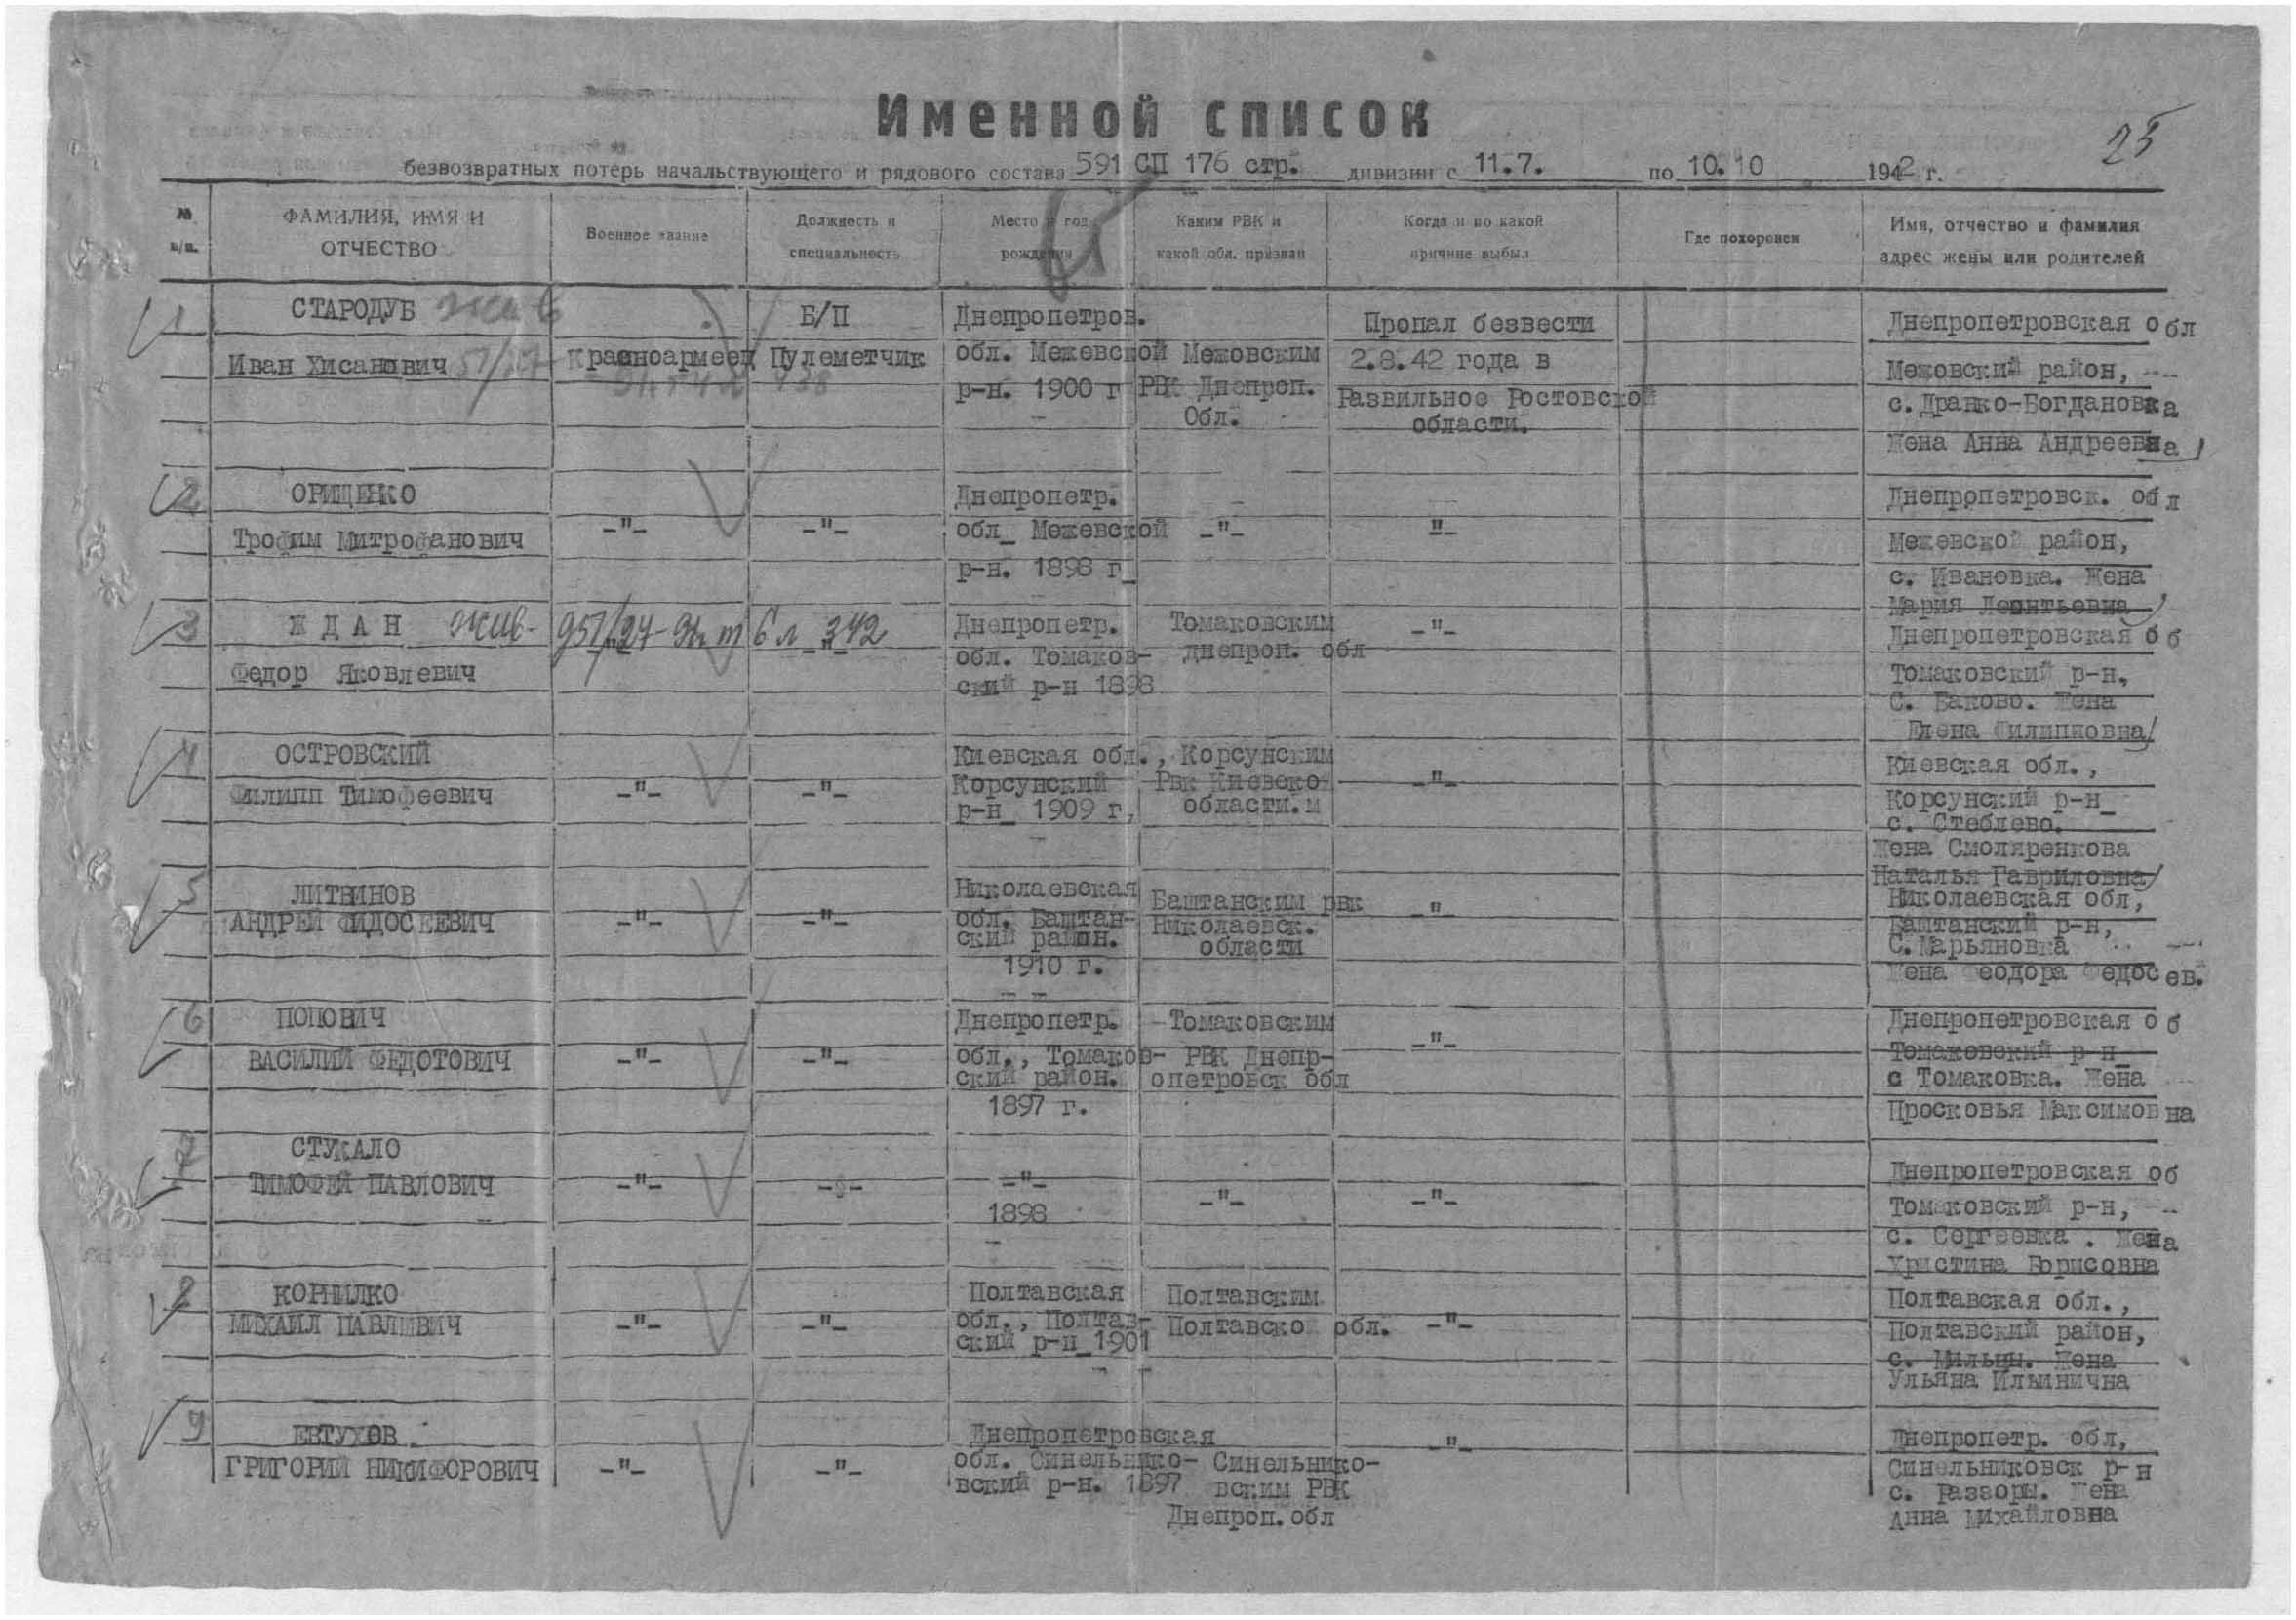 Именной список
25
безвозвратных потерь начальствующего и рядового состава 591 СП 176 стр. дивизии с 11.7. по 10.10 1942 г.
№ п/п.
ФАМИЛИЯ, ИМЯ И
ОТЧЕСТВО
Военное звание
Должность и
специальность
Место и год
рождения
Каким РВК и
какой обл. призван
Когда и по какой
причине выбыл
Где похоронен
Имя, отчество и фамилия
адрес жены или родителей
1
СТАРОДУБ жив
Иван Хисанович
Красноармеец
Б/П
Пулеметчик
438
Днепропетров.
обл. Межевской
р-н. 1900 г
Межовским
РВК Днепроп.
Обл.
Пропал безвести
2.8.42 года в
Развильное Ростовской
области.
Днепропетровская обл
Межовский район,
с. Дранко-Богдановка
Жена Анна Андреевна
2
ОРИЩЕНКО
Трофим Митрофанович
-"-
-"-
Днепропетр.
обл_ Межевской
р-н. 1898 г_
-"-
"-
Днепропетровск. обл
Межевской район,
с. Ивановка. Жена
Мария Леонтьевна
3
ЖДАН жив-
Федор Яковлевич
951/27- 342
Днепропетр.
обл. Томаков-
ский р-н 1898
Томаковским
днепроп. обл
-"-
Днепропетровская об
Томаковский р-н,
С. Баково. Жена
Елена Филипковна
4
ОСТРОВСКИЙ
Филипп Тимофеевич
-"-
-"-
Киевская обл.,
Корсунский
р-н_ 1909 г,
Корсунским
Рвк Киевско
области.м
-"-
Киевская обл.,
Корсунский р-н_
с. Стеблево.
Жена Смоляренкова
Наталья Гавриловна
5
ЛИТВИНОВ
АНДРЕЙ ФИДОСЕЕВИЧ
-"-
-"-
Николаевская
обл. Баштан-
ский район.
1910 г.
Баштанским рвк
Николаевск.
области
-"-
Николаевская обл,
Баштанский р-н,
С. Марьяновка
Жена Феодора Федосев.
6
ПОПОВИЧ
ВАСИЛИЙ ФЕДОТОВИЧ
-"-
-"-
Днепропетр.
обл., Томаков-
ский район.
1897 г.
Томаковским
РВК Днепр-
опетровск обл
-"-
Днепропетровская об
Томаковский р-н
с Томаковка. Жена
Просковья Максимовна
7
СТУКАЛО
ТИМОФЕЙ ПАВЛОВИЧ
-"-
-"-
1898
-"-
-"-
Днепропетровская об
Томаковский р-н,
с. Сергеевка . Жена
Христина Борисовна
8
КОРНИЛКО
МИХАИЛ ПАВЛИВИЧ
-"-
-"-
Полтавская
обл., Полтав-
ский р-н_1901
Полтавским
Полтавско обл.
-"-
Полтавская обл.,
Полтавский район,
с. Мильцы. Жена
Ульяна Ильинична
9
ЕВТУХОВ
ГРИГОРИЙ НИКИФОРОВИЧ
-"-
-"-
Днепропетровская
обл. Синельнико-
вский р-н. 1897
Синельнико-
вским РВК
Днепроп.обл
-"-
Днепропетр. обл,
Синельниковск р-н
с. Раззоры. Жена
Анна Михайловна